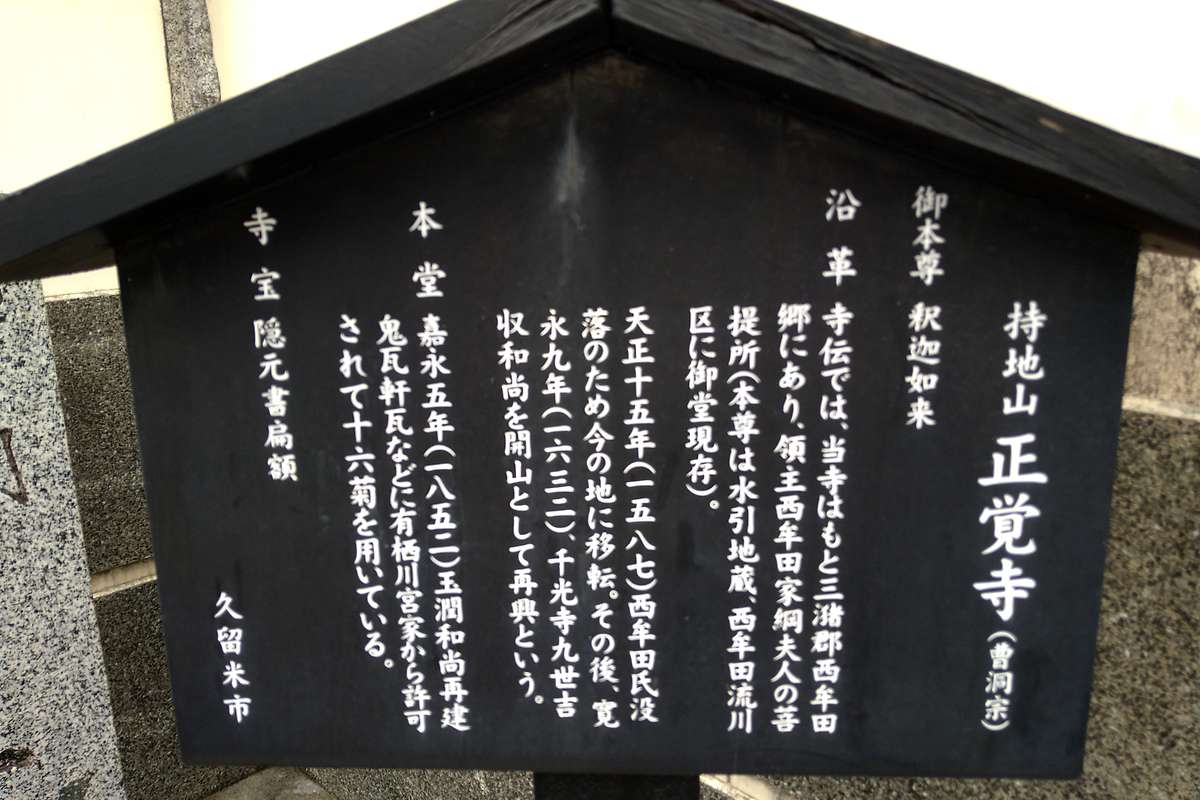 持地山 正覚寺（曹洞宗）
御本尊 釈迦如来
沿革 寺伝では、当寺はもと三潴郡西牟田
郷にあり、領主西牟田家綱夫人の菩
提所（本尊は水引地蔵、西牟田流川
区に御堂現存）。
天正十五年（一五八七）西牟田氏没
落のため今の地に移転。その後、寛
永九年（一六三二）、千光寺九世吉
収和尚を開山として再興という。
本堂 嘉永五年（一八五二）玉潤和尚再建
鬼瓦軒瓦などに有栖川宮家から許可
されて十六菊を用いている。
寺宝 隠元書扁額
久留米市